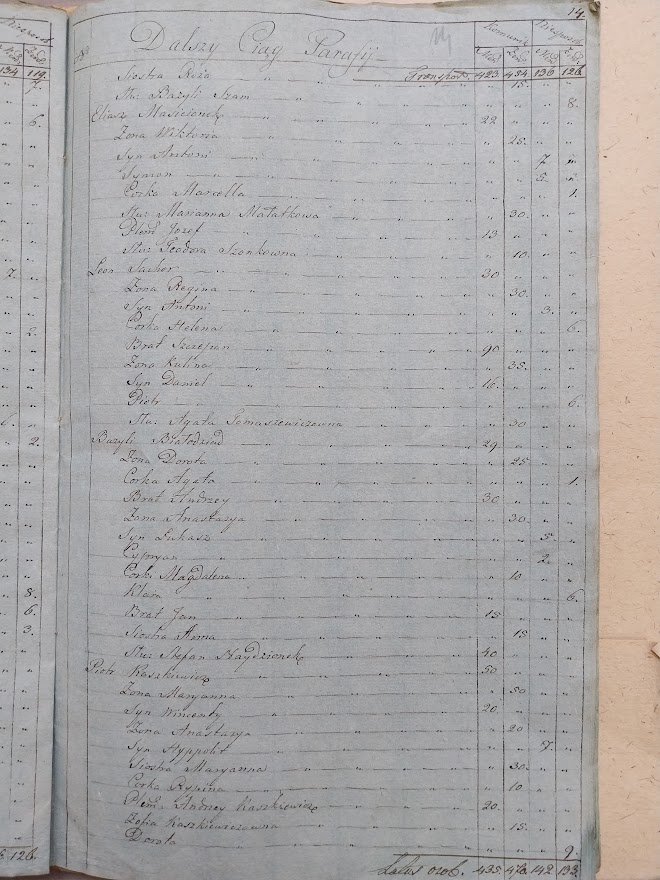 14.
Dalszy Ciąg Parafij
Transport 423. 454 136 126.
Siostra Róża 15.
Służ: Bazyli Szam 8.
Eliasz Maścionek 22
Zona Wiktoria 25.
Syn Antoni 7
Symon 5.
Corka Marcella 1.
Służ: Marianna Małatkowa 30.
Plem: Jozef 13
Służ: Teodora Szonkowna 10.
Leon Suchor 30
Zona Regina 30.
Syn Antoni 3.
Corka Helena 6.
Brat Szczepan 90
Zona Kulina 35.
Syn Daniel 16.
Piotr 6.
Służ: Agata Tomaszewiczowna 30
Bazyli Białodzied 29
Zona Dorota 25
Corka Agata 1.
Brat Andrzey 30
Zona Anastazya 30.
Syn Łukasz 5.
Cypryan 2.
Corki Magdalena 10
Klara 6.
Brat Jan 15
Siostra Anna 15
Służ: Stefan Naydzionek 40
Piotr Kaszkiewicz 50
Zona Maryanna 50
Syn Wincenty 20
Zona Anastazya 20
Syn Hyppolit 7.
Siostra Maryanna 30.
Corka Rypina 10
Plem: Andrzey Kaszkiewicz 20.
Zofia Kaszkiewiczowna 15.
Dorota 9.
Latus osob. 435. 476. 142 133.